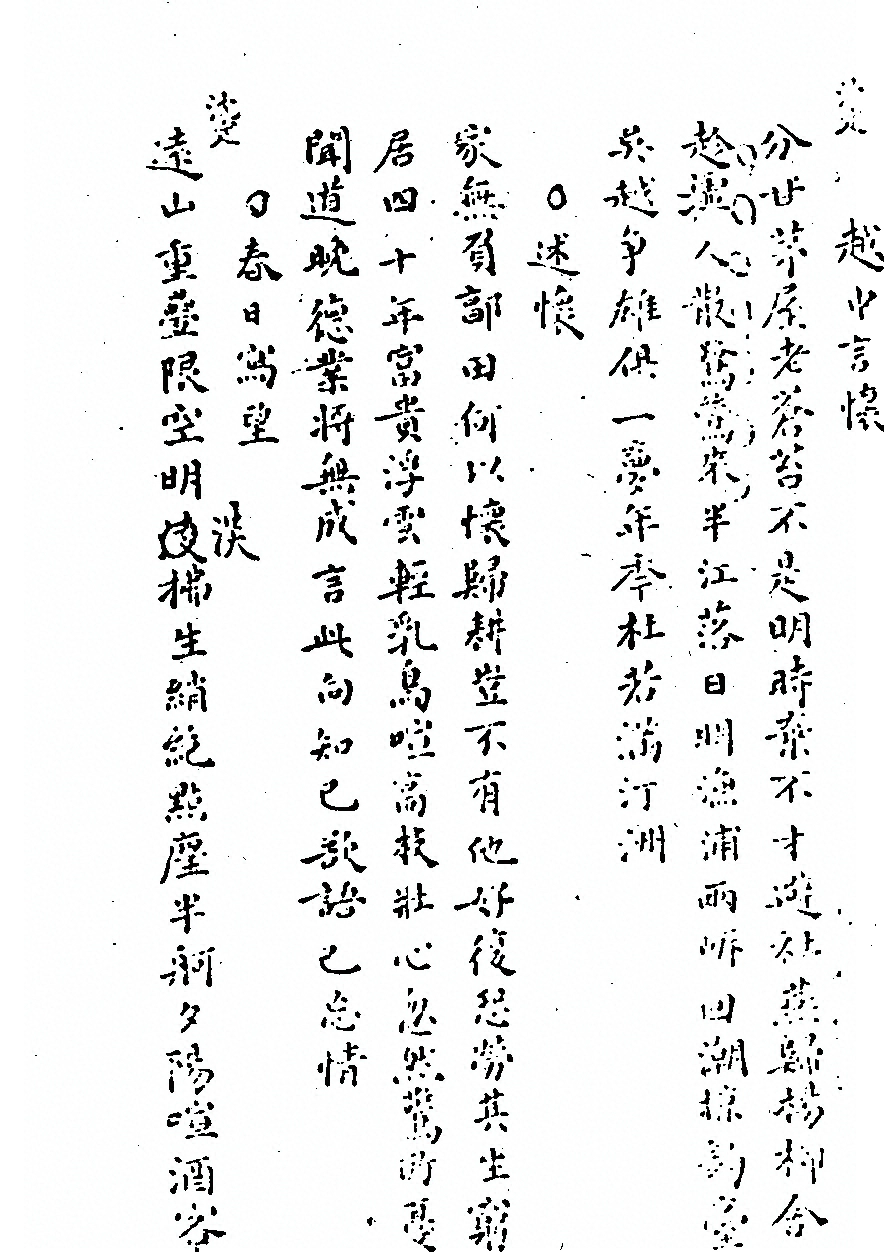 越中言懷
分廿茅屋老蒼苔不是明時棄不才遊社燕歸楊柳舍
趁墟人散鷺鷥來半江落日明漁浦兩岸回潮撼釣臺
吳越爭雄俱一夢年季杜若滿汀洲
述懷
家無負郭田何以懷歸耕豈不有他好復恐勞其生窮
居四十年富貴浮雲輕乳烏喧高枝壯心忽然驚所憂
聞道晚德業將無成言此向知己歌語已忘情
春日寫望
遠山重疊限空明淡
掃生綃絕點塵半舸夕陽喧酒客